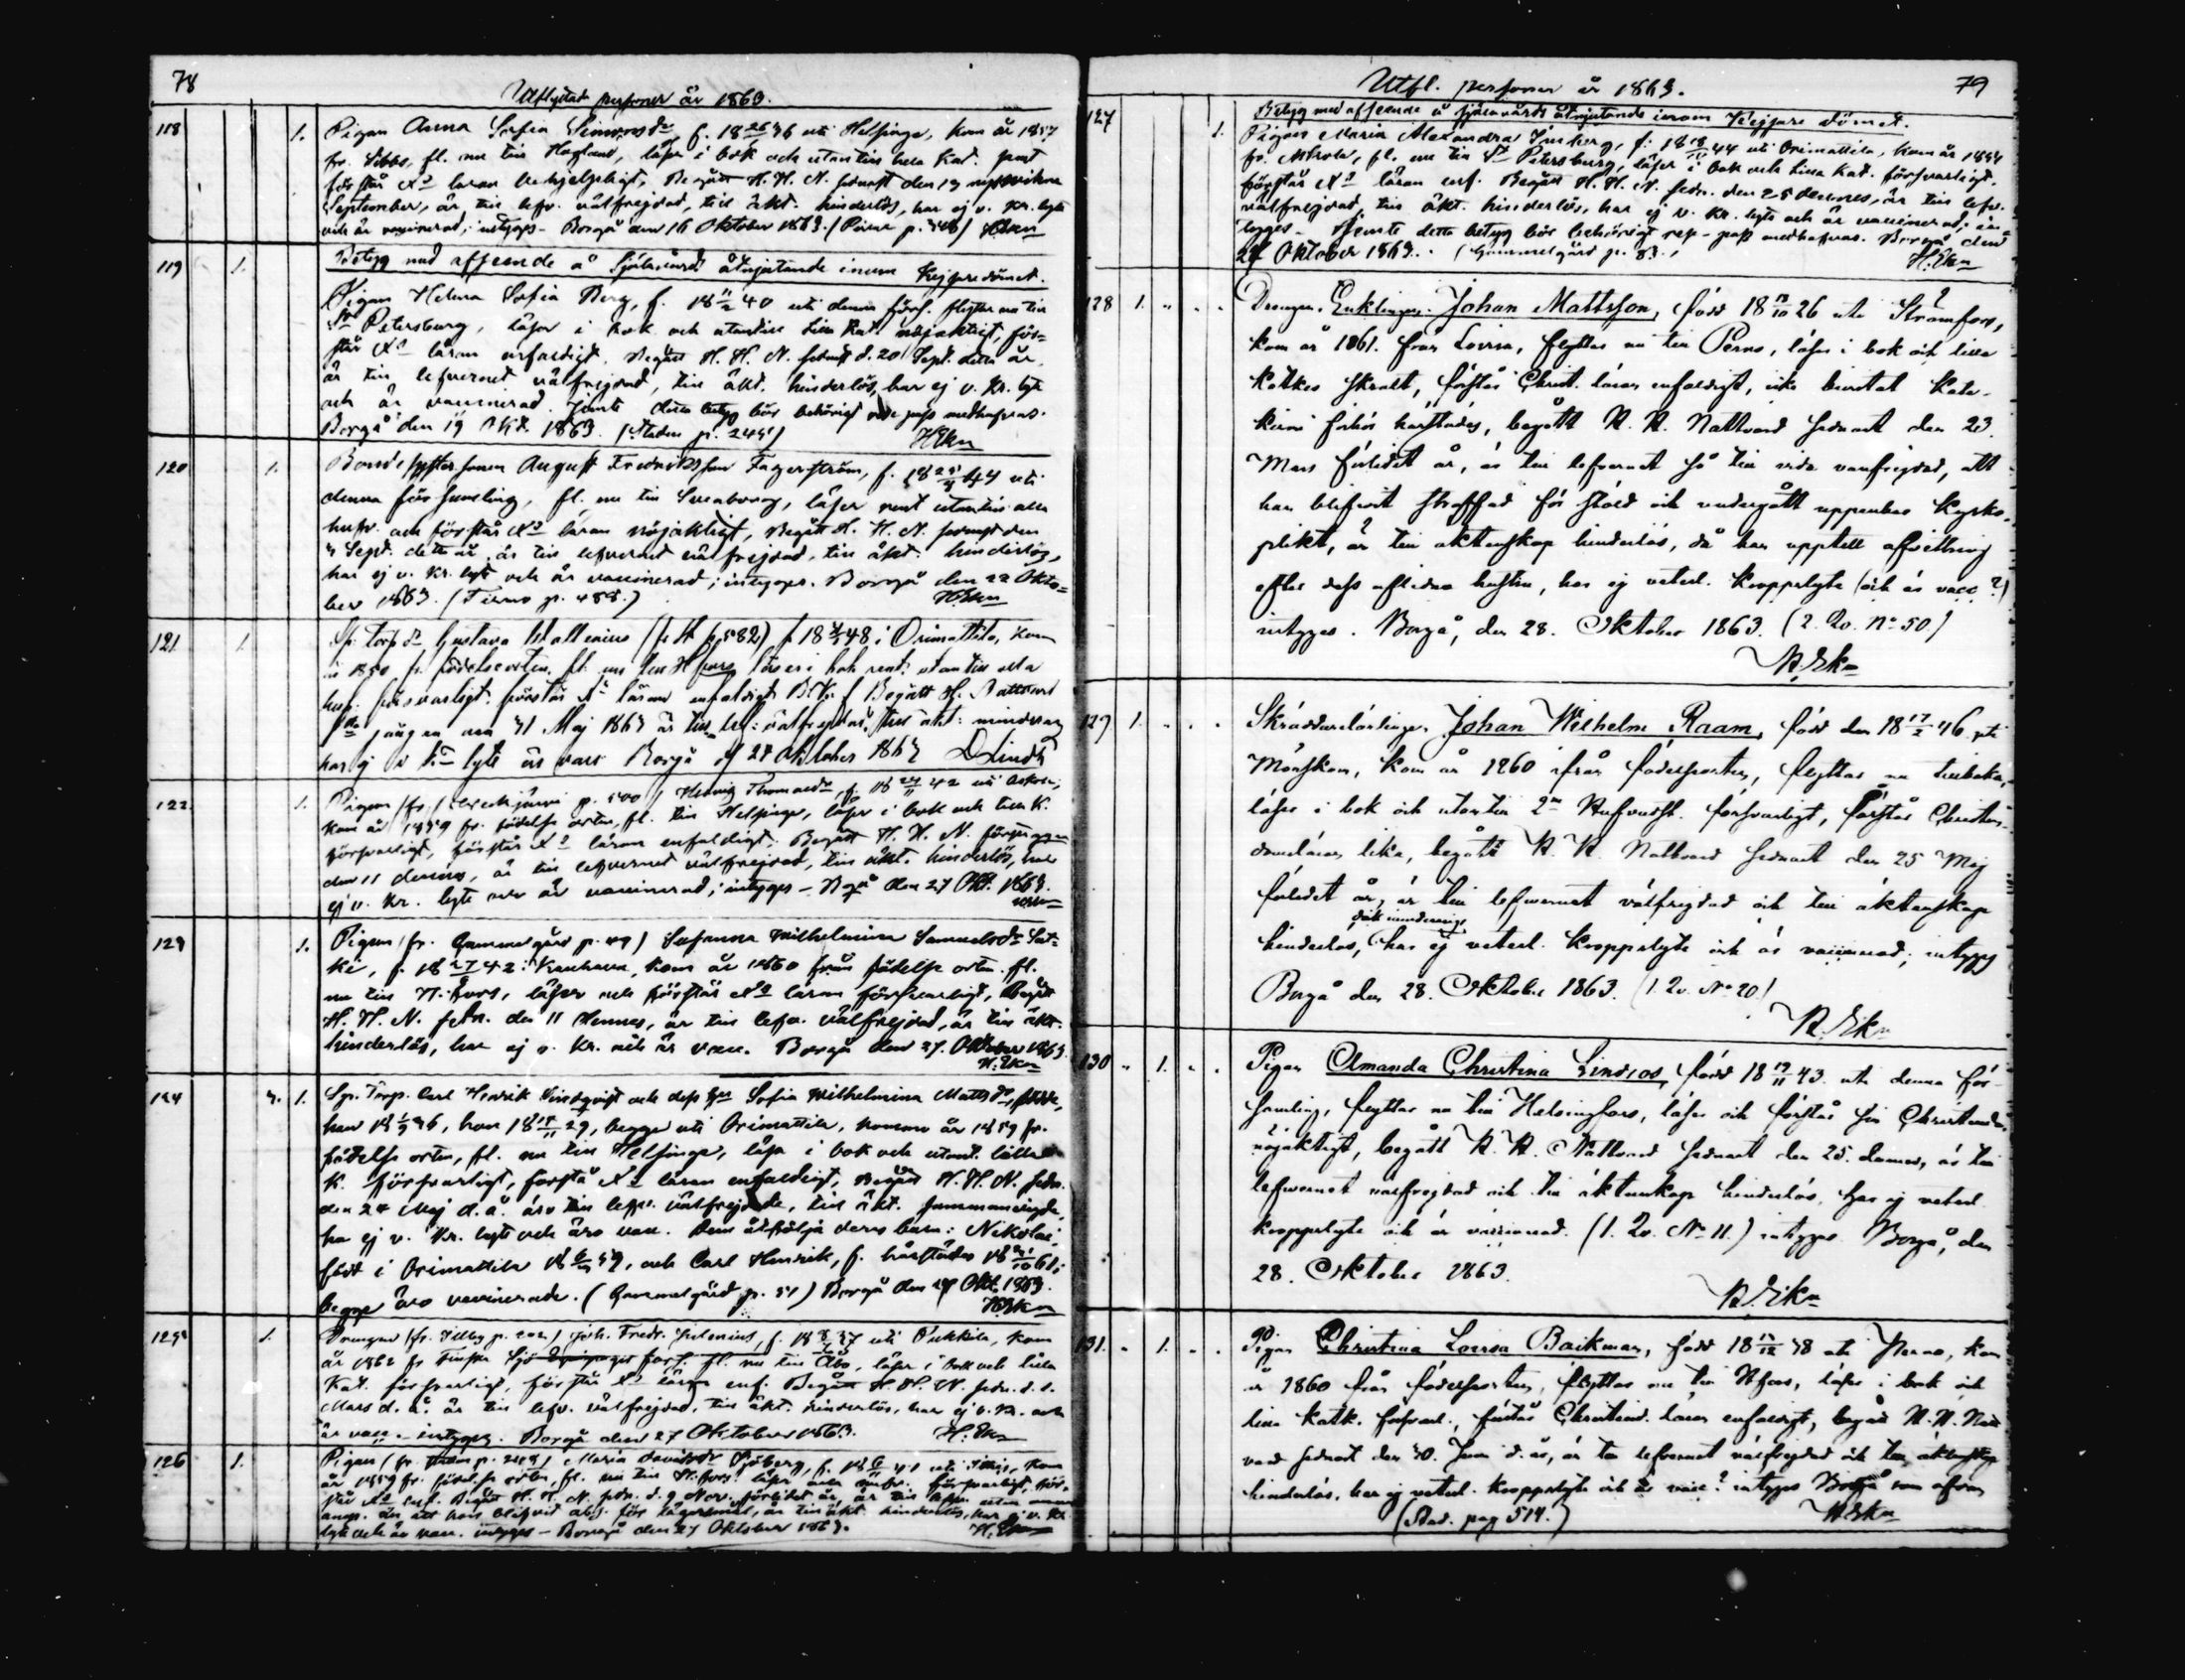 78
Utflyttade personer år 1863.
118 1. Pigan Anna Sofia Simonsdr, f. 18 26/ 36 uti Helsinge, kom år 1857
fr. Sibbo, fl. nu till Hogland, läser i bok och utantill hela Kat. samt
förstår Xs läran behjelpligt, Begått H. H. N. sednast den 13
September, är till lefv. välfrejdad, till äkt. hinderlös, har ej v. kr. lyte
och är vaccinerad; intygas - Borgå den 16 Oktober 1863. HEkn
119 1. Betyg med afseende å Själavård åtnjutande inom Kejsaredömet.
Pigan Helena Sofia Berg, f. 18 11/2 40 uti denna förs. flyttar nu till
St Petersburg, läser i bok och utantill Lilla Kat. nöjaktigt, för-
står Xs läran enfaldigt. Begått H. H. N. sednast d. 20 Sept. detta år,
är till lefvernet välfrejdad, till äkt. hinderlös, har ej v. kr. lyte
och är vaccinerad. Jemte detta betyg bör behörigt pass medhafvas.
Borgå den 19 Okt. 1863. (Staden p. 245) HEkn
120 1. Bondesystersonen August Fredriksson Fagerström, f. 18 25/ 44 uti
denna församling, fl. nu till Sveaborg, läser rent utantill alla
hufv. och förstår Xs läran nöjaktigt, Begått H. H. N. sednast den
Sept. detta år, är till lefvernet välfrejdad, till äkt. hinderlös,
har ej v. kr. lyte och är vaccinerad; intygas. Borgå den 22 Okto-
ber 1863. HEkn
121 1. Sp. torp dr Gustava Wallenius f 18 48 i Orimattila, kom
år 1850 fr. födelseorten, fl. nu till Hfors läser i bok rent utantill alla
hufv. försvarligt förstår Xs läran enfaldigt Begått H. Nattvard
1sta gången den 31 Maj 1863 är till lef: välfrejdad, till äkt: minderårig
har ej v kr lyte är vacc Borgå d 27 Oktober 1863
122 1. Pigan Hedvig Thomasdr, f. 18 42 uti Askola,
kom år 1859 fr. födelse orten, fl. till Helsinge, läser i bok och lilla K.
försvarligt, förstår Xs läran enfaldigt. Begått H. H. N.
den 11 dennes, är till lefvernet välfrejdad, till äkt. hinderlös, har
ej v. kr. lyte och är vaccinerad; intygas - Borgå den 27 Okt. 1863.
123 1. Pigan (fr. Gammelgård p. 49) Susanna Wilhelmina Samuelsdr
f. 18 27/ 42 i Kauhava, kom år 1860 från födelse orten. fl.
nu till H:fors, läser och förstår Xs läran försvarligt, Begått
H. H. N. sedn. den 11 dennes, är till lefv. välfrejdad, är till äkt.
hinderlös, har ej v. kr. och är vacc. Borgå den 27. Oktober 1863.
H. Ekn
124 4. 1. Sp. Torp. Carl Henrik Lindqvist och dess hu Sofia Wilhelmina Mattsdr, födde,
han 18 36, hon 18 29, begge uti Orimattila, komne år 1859 fr.
födelse orten, fl. nu till Helsinge, läsa i bok och utant. lilla
K. försvarligt, förstå Xs läran enfaldigt, Begått H. H. N. sedn.
den 24 Maj d. å. äro till lefv. välfrejdade, till äkt. sammanvigde,
ha ej v. kr. lyte och äro vacc. Dem åtfölja deras barn: Nikolai
född i Orimattila 18 59, och Carl Henrik, f. härstädes 18 61;
begge äro vaccinerade. (Gammelgård p. 51) Borgå den 27 Okt. 1863.
HEkn
125 1. Drengen (fr. Illby p. 202) Joh. Fredr. f. 18 37 uti Pukkila, kom
år 1862 fr fl. nu till Åbo, läser i bok och lilla
Kat. försvarligt, förstår Xs läran enf. Begått H. H. N. sedn. d. 1.
Mars d. å. är till lefv. välfrejdad, till äkt. hinderlös, har ej v. kr. och
är vacc. - intygas. Borgå den 27 Oktober 1863. H. Ekn
126 1. Pigan Maria Davidsdr Sjöberg, f. 18 41 uti kom
år 1859 fr. födelse orten, fl. nu till H:fors, läser försvarligt, för-
står Xs enf. Begått H. H. N. sedn. d. 9 Nov. förlidet år, är till lefv.
är till äkt. hinderlös, har ej v. kr.
lyte och är vacc. intygas - Borgå den 27 Oktober 1863. H. Ekn
Utfl. personer år 1863. 79
127 1. Betyg med afseende å själavårds åtnjutande inom Kejsaredömet.
Pigan Maria Alexandra f: 18 18/ 44 uti Orimattila, kom år 1854
fr. fl. nu till St Petersburg, läser i bok och lilla Kat. försvarligt.
förstår Xs läran enf. Begått H. H. N. sedn. den 25 dennes, är till lefv.
välfrejdad, till äkt. hinderlös, har ej v. kr. lyte och är vaccinerad; in-
tygas - Jemte detta betyg bör behörigt pass medhafvas. Borgå den
27 Oktober 1863. (Gammelgård p. 83.)
H. Ekn
128 1. Drengen, Enklingen Johan Mattsson, född 18 26 uti Strömfors,
kom år 1861. från Lovisa, flyttar nu till Perno, läser i bok och lilla
katkes skralt, förstår Christ. läran enfaldigt, icke bivistat Kate-
kismi förhör härstädes, begått H. H. Nattvard sednast den 23.
Mars förlidet år, är till lefvernet så till vida vanfrejdad, att
han blifvit straffad för stöld och undergått uppenbar Kyrko-
plikt, är till äktenskap hinderlös, då han upptett afvittring
efter dess aflidna hustru, har ej veterl. kroppslyte (och är vacc ?)
intygas. Borgå, den 28. Oktober 1863. (2. Qv. No 50)
H. Ekn
129 1. Skräddarelärlingen Johan Wilhelm Raam, född den 18 17/2 46 uti
Mörskom, kom år 1860 ifrån födelseorten, flyttar nu tillbaka,
läser i bok och utantill 2ne Hufvudst. försvarligt, förstår Christen-
domsläran lika, begått H. H. Nattvard sednast den 25 Maj
förlidet år, är till lefvernet välfrejdad och till äktenskap
hinderlös, dock minderårig, har ej veterl. kroppslyte och är vaccinerad; intygas
Borgå den 28. Oktober 1863. (1. Qv. No 20)
H. Ekn
130 1. Pigan Amanda Christina Lindroos, född 18 19/11 43 uti denna för-
samling, flyttar nu till Helsingfors, läser och förstår sin Christendom
nöjaktigt, begått H. H. Nattvard sednast den 25. dennes, är till
lefvernet välfrejdad och till äktenskap hinderlös, har ej veterl.
kroppslyte och är vaccinerad. (1. Qv. No 11.) intygas Borgå, den
28. Oktober 1863.
H. Ekn
131. 1. Pigan Christina Lovisa Backman, född 18 38 uti Perno, kom
år 1860 från födelseorten, flyttar nu till Hfors, läser i bok och
lilla katk. försvarl., förstår Christend. läran enfaldigt, begått H. H. Natt-
vard sednast den 30. Juni d. år, är till lefvernet välfrejdad och till äktenskap
hinderlös, har ej veterl. kroppslyte och är vacc.? intygas Borgå som ofvan
(Stad. pag 514.) H. Ekn